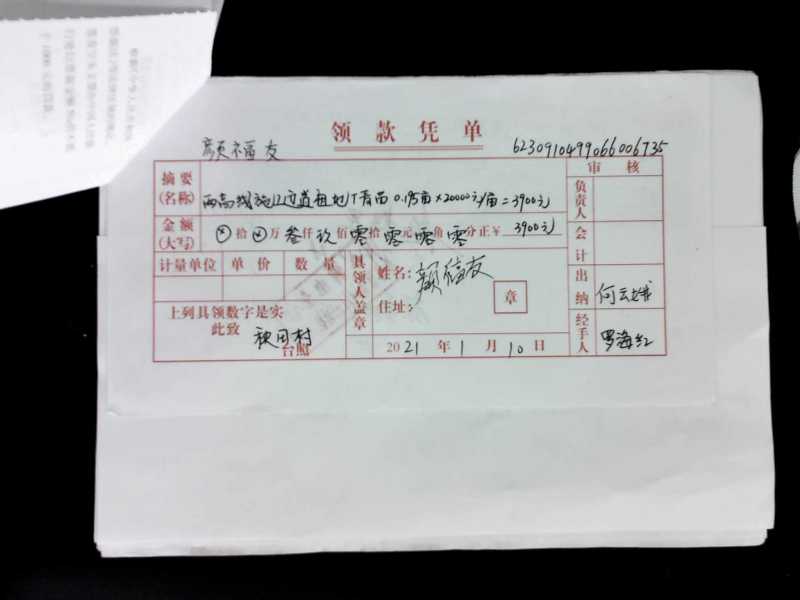 领款凭单
颜福友 6230910499066006735
审核
摘要(名称) 西高线施工便道租地丁青苗 0.195亩×20000元/亩=3900元
负责人
金额(大写) ⊗拾⊗万叁仟玖佰零拾零元零角零分正¥ 3900元
会计
计量单位 单价 数量
具领人盖章
姓名: 颜福友
住址:
章
出纳 何云娥
上列具领数字是实
此致 秧田村 台照
2021年1月10日
经手人 罗海红